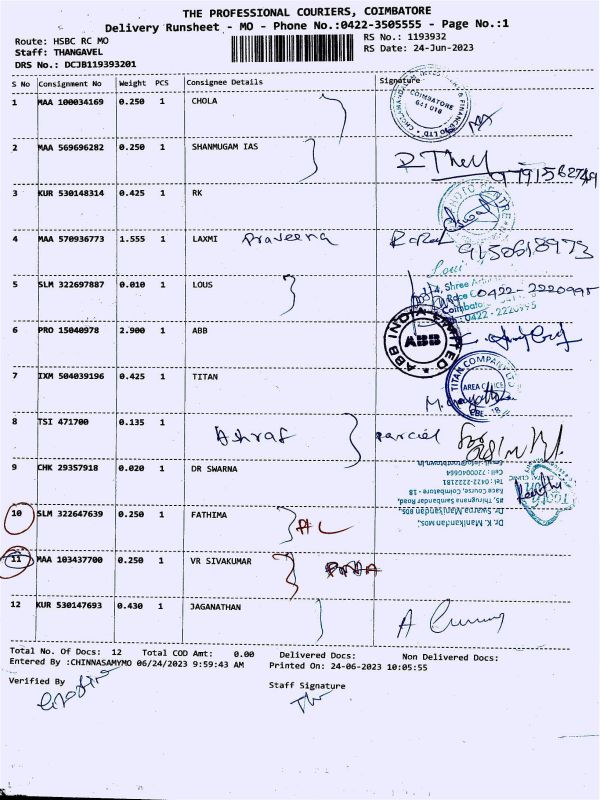 THE PROFESSIONAL COURIERS, COIMBATORE
Delivery Runsheet - MO - Phone No.:0422-3505555 - Page No.:1
Route: HSBC RC MO
Staff: THANGAVEL
DRS No.: DCJB119393201
RS No.: 1193932
RS Date: 24-Jun-2023
S No Consignment No Weight PCS Consignee Details Signature
1 MAA 100034169 0.250 1 CHOLA
COIMBATORE
641 018
2 MAA 569696282 0.250 1 SHANMUGAM IAS
3 KUR 530148314 0.425 1 RK
4 MAA 570936773 1.555 1 LAXMI Praveena
9150618973
5 SLM 322697887 0.010 1 LOUS
0422-2220995
: 0422 - 2220995
6 PRO 15040978 2.900 1 ABB
ABB INDIA LIMITED
ABB
7 IXM 504039196 0.425 1 TITAN
TITAN COMPANY LTD
AREA OFFICE
8 TSI 471700 0.135 1 Ashraf parcel
9 CHK 29357918 0.020 1 DR SWARNA
Dr. K. Manikandan MDS,
Dr. Swarna Manikandan BDS
Race Course, Coimbatore - 18
Tel : 0422-2222181
Cell : 7200400664
10 SLM 322647639 0.250 1 FATHIMA
11 MAA 103437700 0.250 1 VR SIVAKUMAR
12 KUR 530147693 0.430 1 JAGANATHAN
Total No. Of Docs: 12 Total COD Amt: 0.00 Delivered Docs: Non Delivered Docs:
Entered By :CHINNASAMYMO 06/24/2023 9:59:43 AM Printed On: 24-06-2023 10:05:55
Verified By
Staff Signature